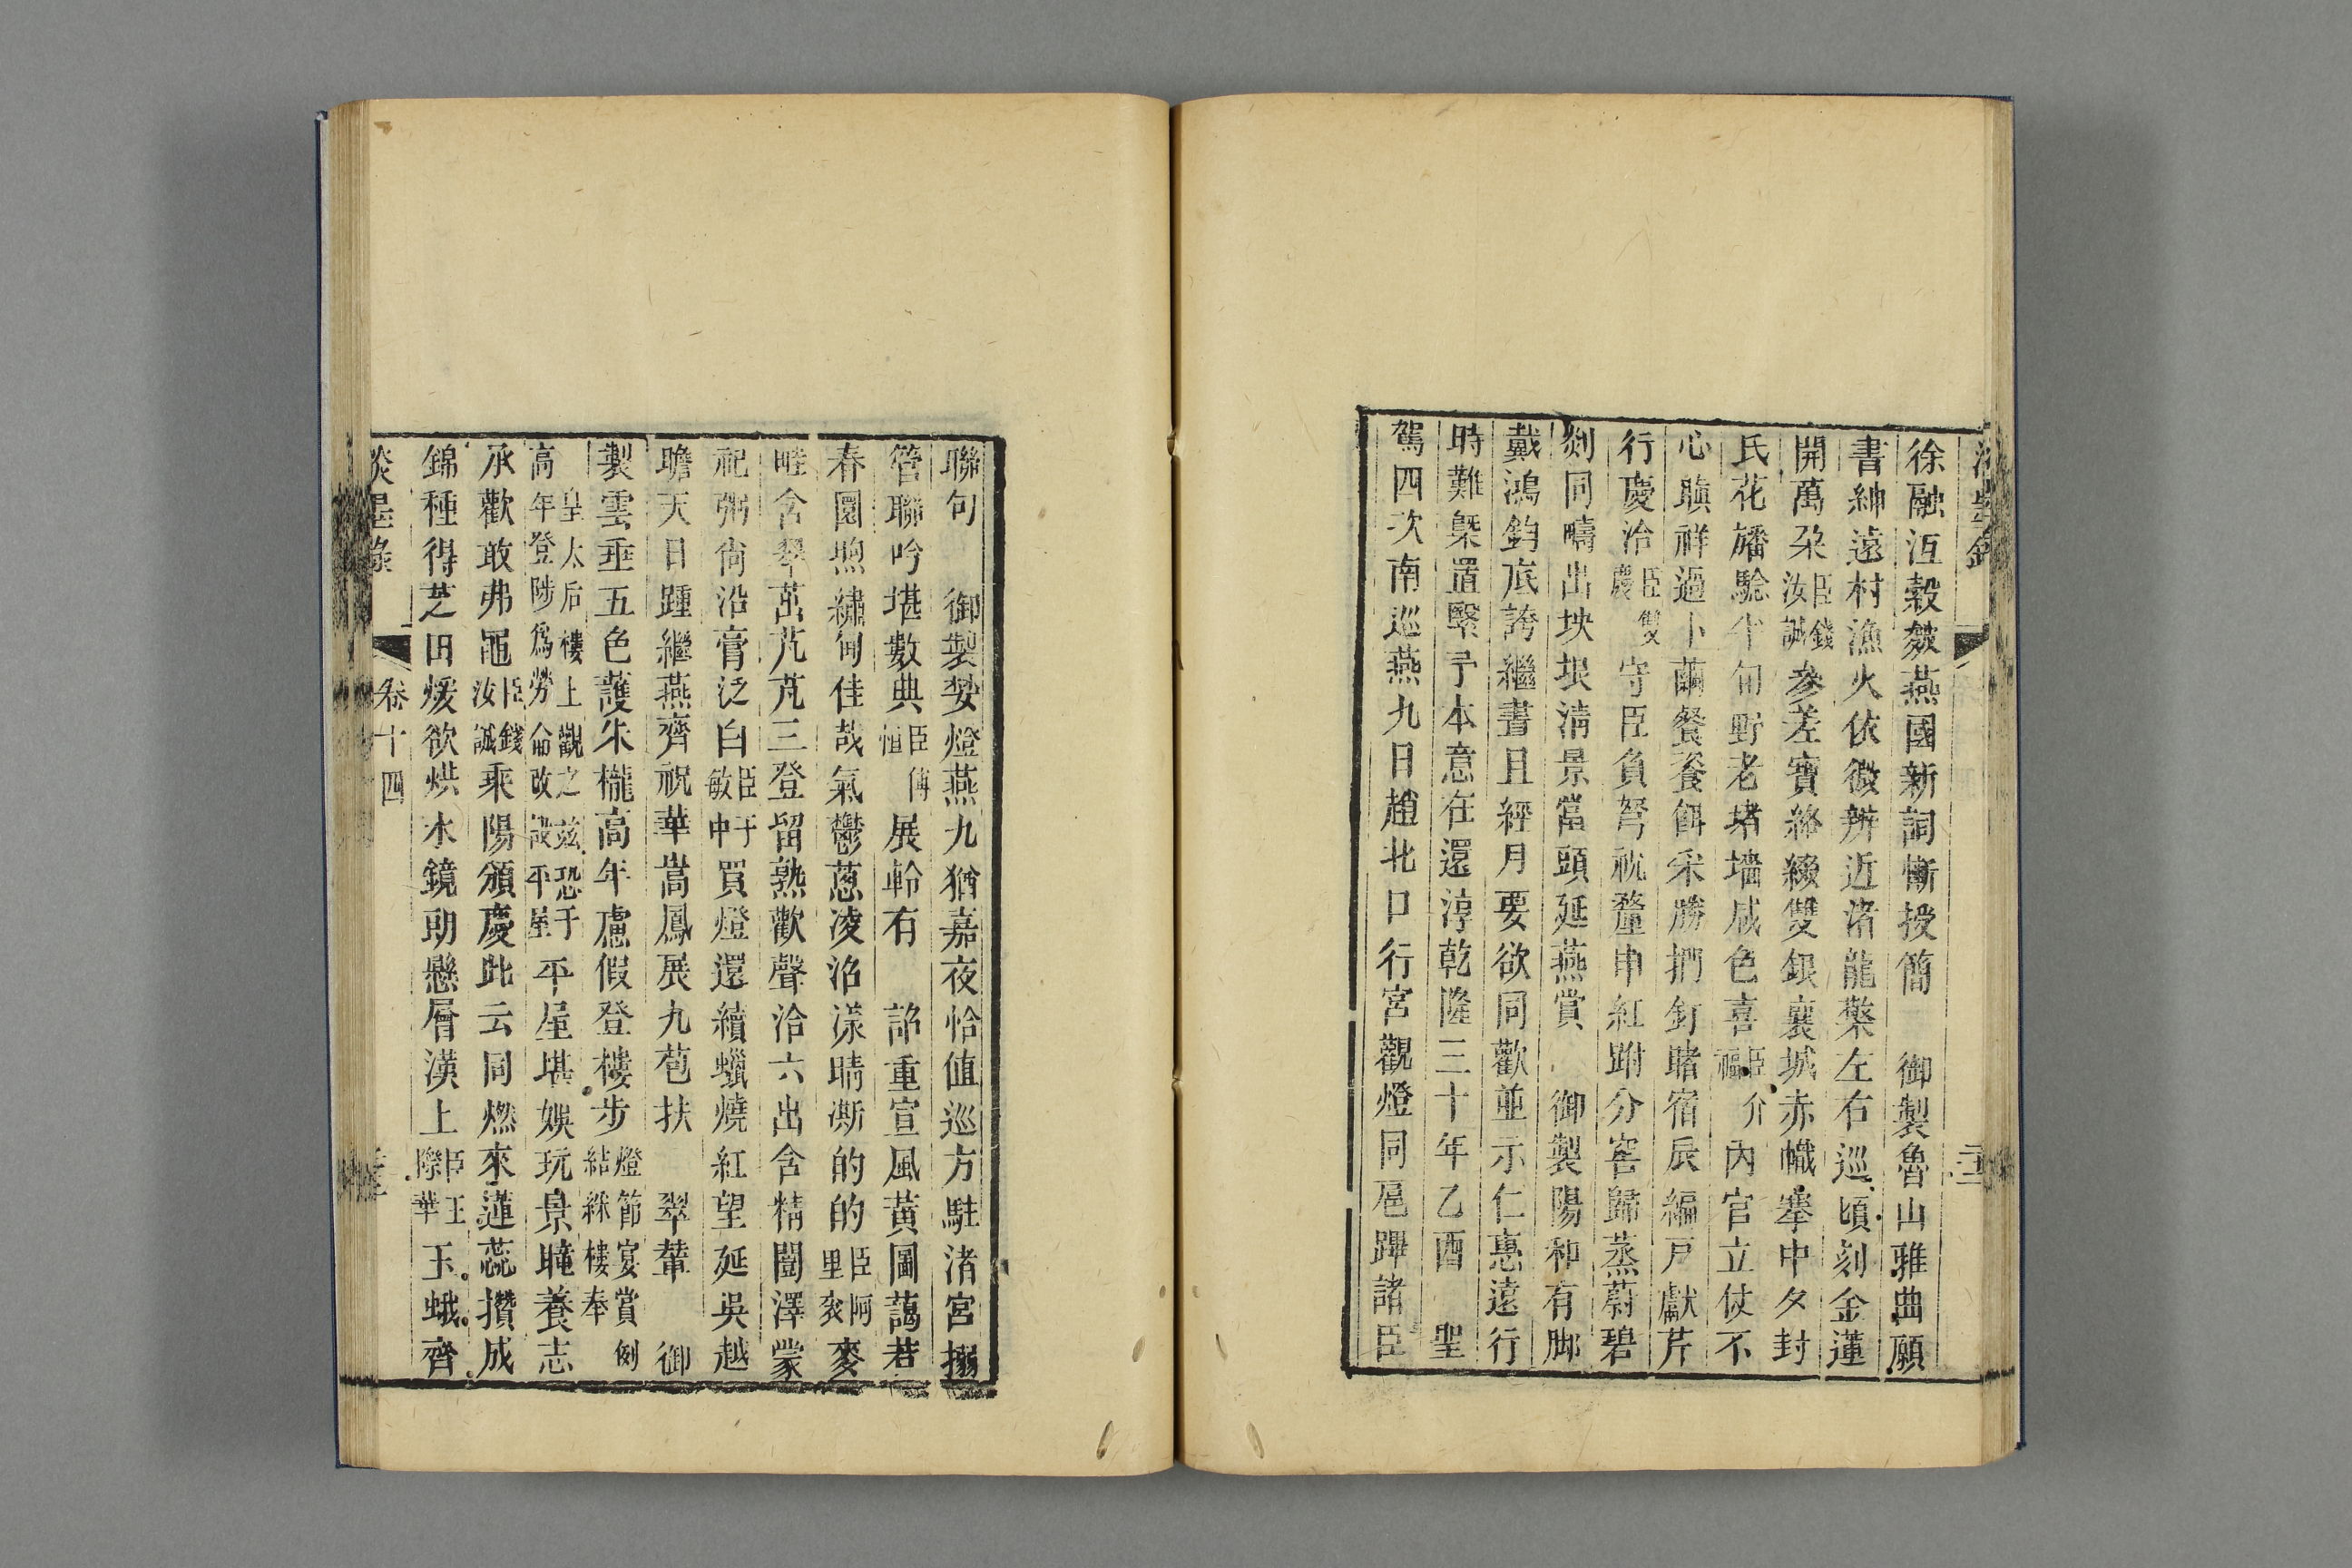 徐融沍縠皴燕國新詞慚授簡　御製魯山雅曲願
書紳遠村漁火依微辨近渚龍檠左右巡頃刻金蓮
開萬朶臣錢汝誠參差寶絡綴雙銀襄城赤幟搴中夕封
氏花旛駘半旬野老堵墻咸色喜臣介福內官立仗不
心瞋祥過卜繭餐餈餌采勝捫釘賭宿辰編戸獻芹
行慶洽臣雙慶守臣負弩祝釐申紅跗分窖歸蒸蔚碧
剡同疇出坱垠淸景當頭延燕賞　御製陽和有脚
戴鴻鈞底誇繼晝且經月要欲同歡並示仁惠遠行
時難槩置緊予本意在還淳乾隆三十年乙酉　聖
駕四次南巡燕九日趙北口行宮觀燈同扈蹕諸臣
聯句　御製挐燈燕九猶嘉夜恰値巡方駐渚宮搦
管聯吟堪數典臣傅恒展軨有　詔重宣風黃圖藹若
春園煦繡甸佳哉氣鬱葱凌沿漾晴澌的的臣阿里袞麥
畦含翠茁芃芃三登留熟歡聲洽六出含精闓澤蒙
祀粥尙沿膏泛白臣于敏中買燈還續蠟燒紅望延吳越
瞻天日踵繼燕齊祝華嵩鳳展九苞扶　翠輦　御
製雲垂五色護朱櫳高年慮假登樓步燈節宴賞例結綵樓奉
皇太后樓上觀之茲恐于高年登陟爲勞侖改設平屋平屋堪娛玩景瞳養志
承歡敢弗黽臣錢汝誠乘陽頒慶此云同燃來蓮蕊攢成
錦種得芝田煖欲烘水鏡朗懸層漢上臣王際華玉蛾齊
淡墨錄　卷十四